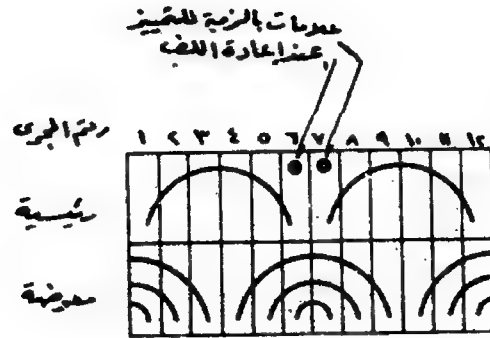 علامات بالزمبة للتمييز
عند إعادة اللف
رقم المجرى ١ ٢ ٣ ٤ ٥ ٦ ٧ ٨ ٩ ١٠ ١١ ١٢
رئيسية